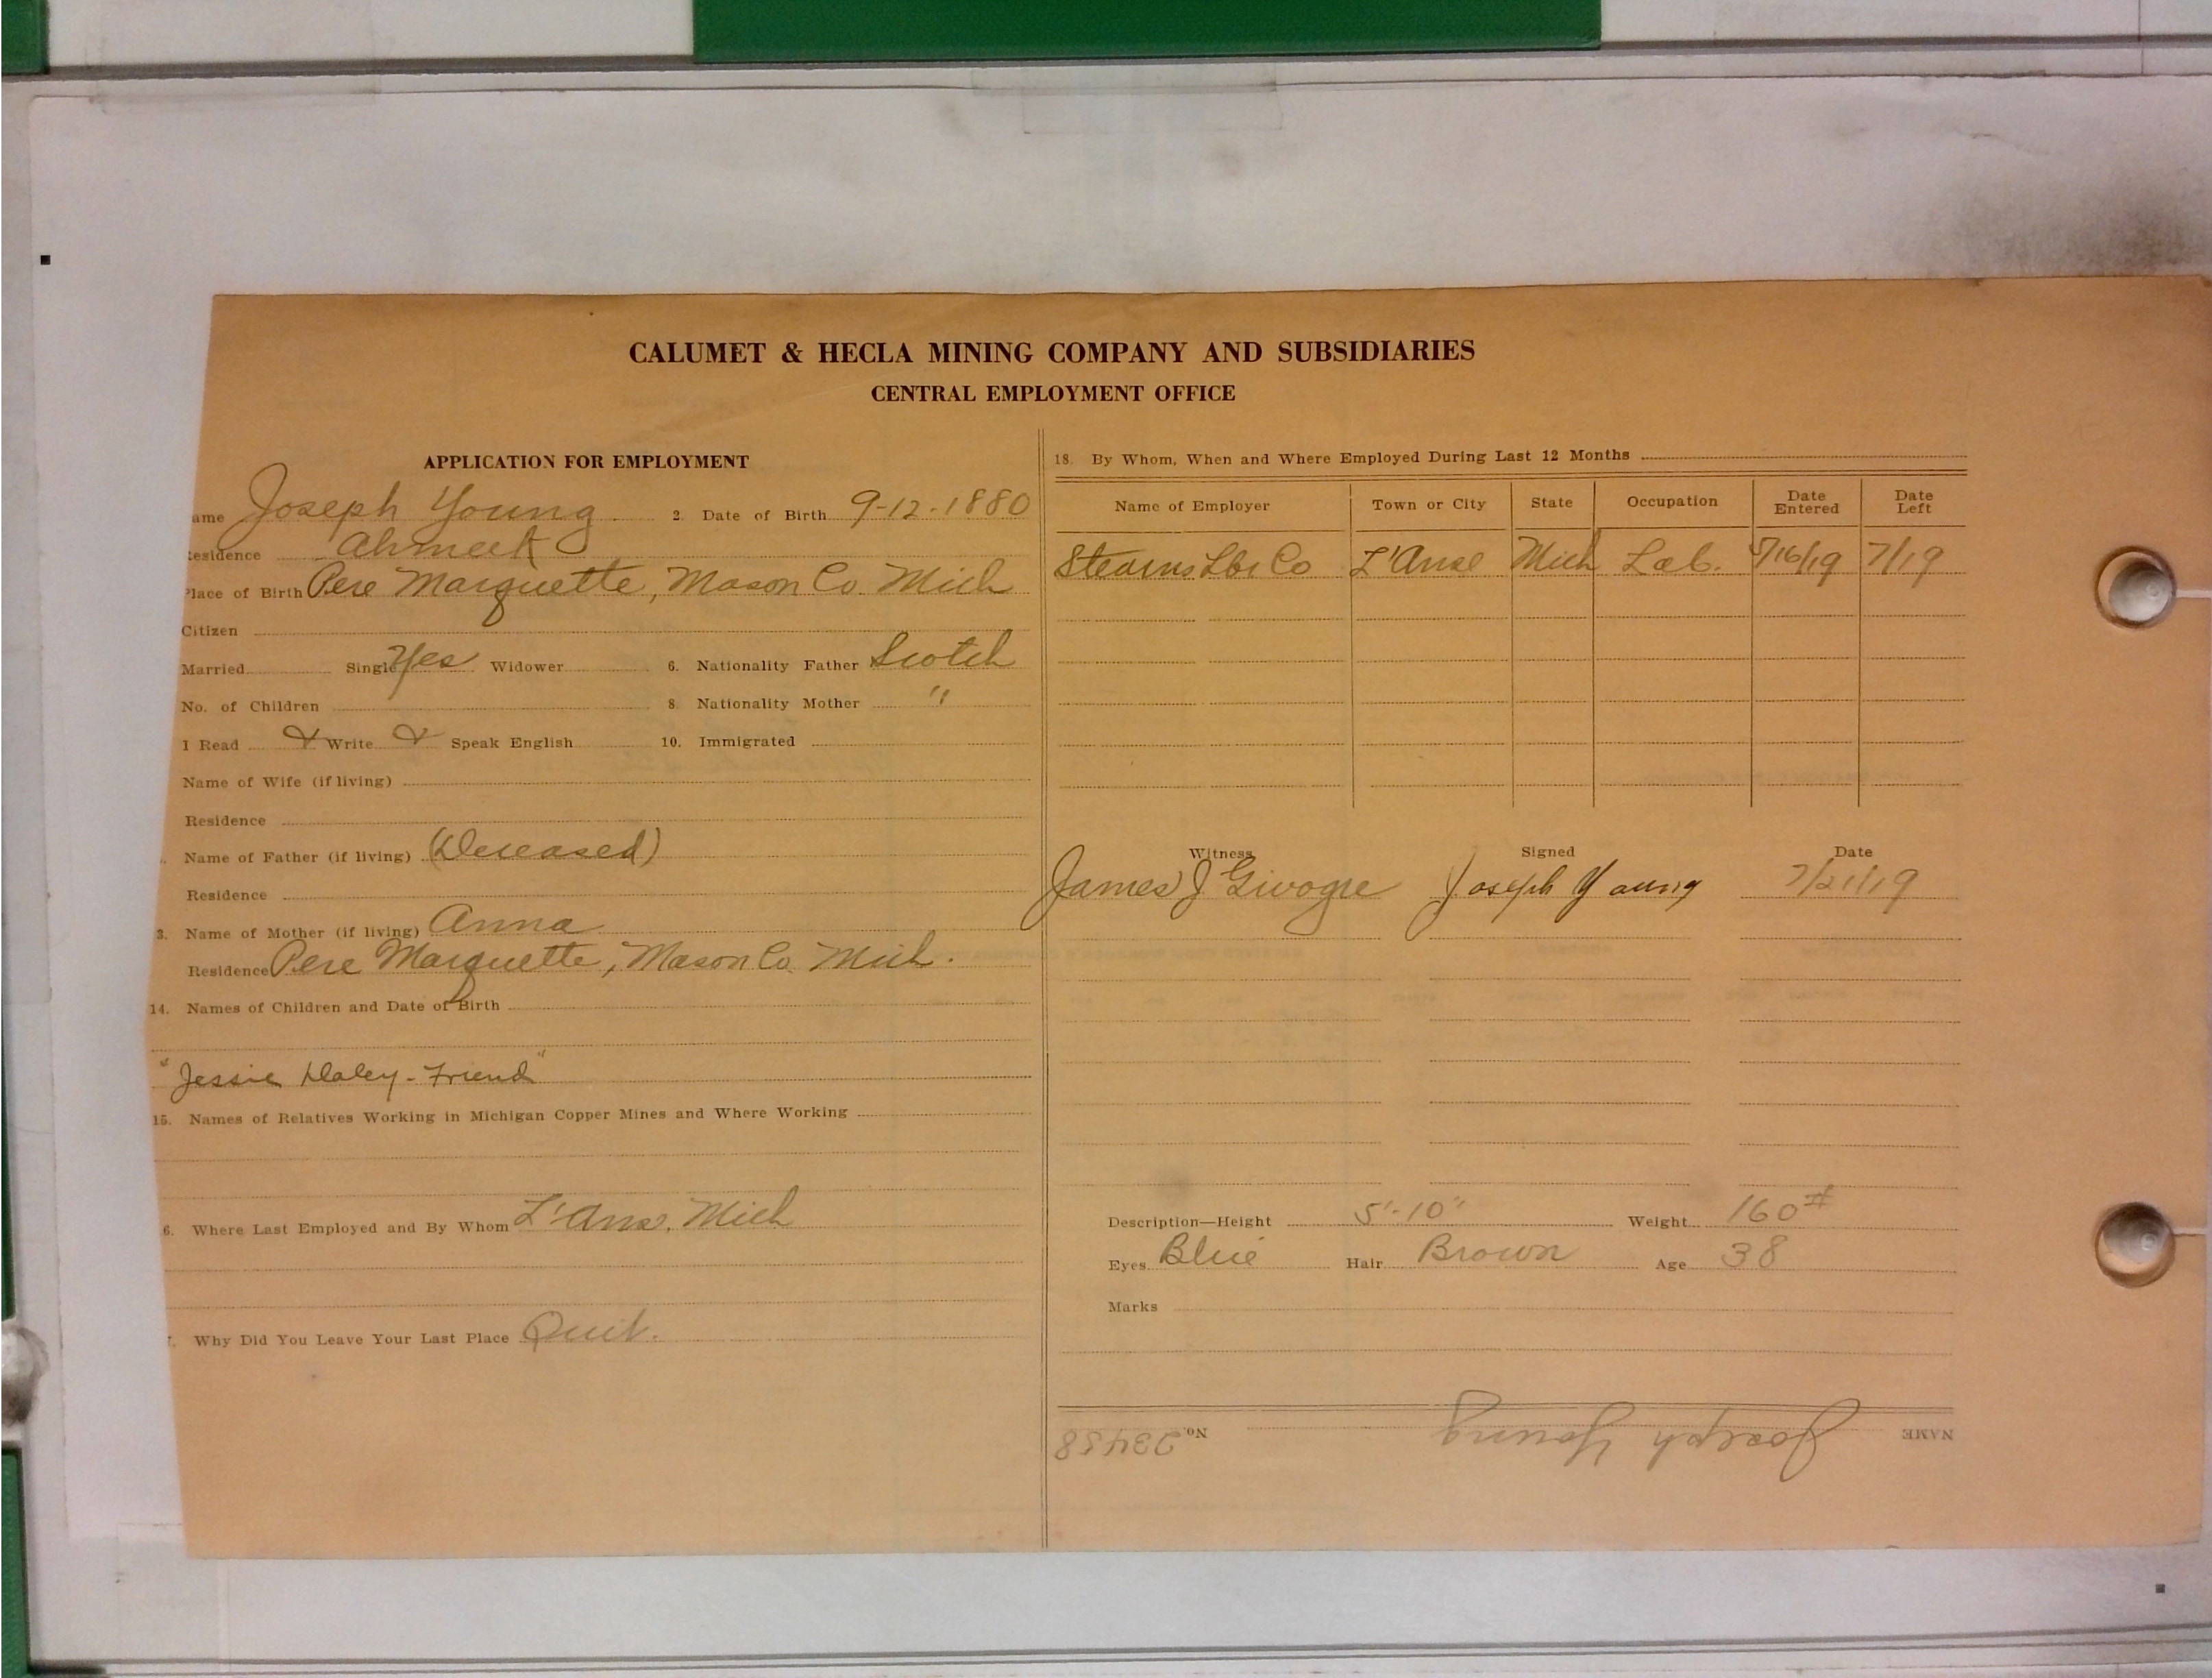 CALUMET & HECLA MINING COMPANY AND SUBSIDIARIES
CENTRAL EMPLOYMENT OFFICE
APPLICATION FOR EMPLOYMENT
ame Joseph Young 2. Date of Birth 9-12-1880
Residence Ahmeek
Place of Birth Pere Marquette, Mason Co. Mich
Citizen
Married Single Yes Widower 6. Nationality Father Scotch
No. of Children 8. Nationality Mother "
I Read Write Speak English 10. Immigrated
Name of Wife (if living)
Residence
Name of Father (if living) (Deceased)
Residence
3. Name of Mother (if living) Anna
Residence Pere Marquette, Mason Co. Mich.
14. Names of Children and Date of Birth
"Jessie Daley - Friend"
15. Names of Relatives Working in Michigan Copper Mines and Where Working
6. Where Last Employed and By Whom L'Anse, Mich
Why Did You Leave Your Last Place Quit.
18. By Whom, When and Where Employed During Last 12 Months
Name of Employer Town or City State Occupation Date Entered Date Left
Stearns Lbr Co L'Anse Mich Lab. 5/16/19 7/19
Witness Signed Date
James J Joseph Young 7/21/19
Description—Height 5'-10" Weight 160#
Eyes Blue Hair Brown Age 38
Marks
NAME Joseph Young No. 23458